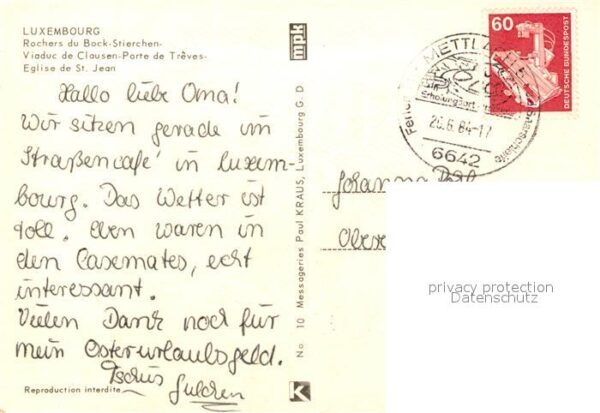 LUXEMBOURG
Rochers du Bock-Stierchen-
Viaduc de Clausen-Porte de Trêves-
Eglise de St. Jean
Hallo liebe Oma!
Wir sitzen gerade im
Straßencafé in Luxem-
bourg. Das Wetter ist
toll. Eben waren in
den Casemates, echt
interessant.
Vielen Dank noch für
mein Osterurlaubsgeld.
Tschüs
Reproduction interdite
mpk
No. 10 Messageries Paul KRAUS, Luxembourg G. D
K
60
DEUTSCHE BUNDESPOST
METTLACH
Erholungsort
26.6.84-17
6642
Johanna
privacy protection
Datenschutz